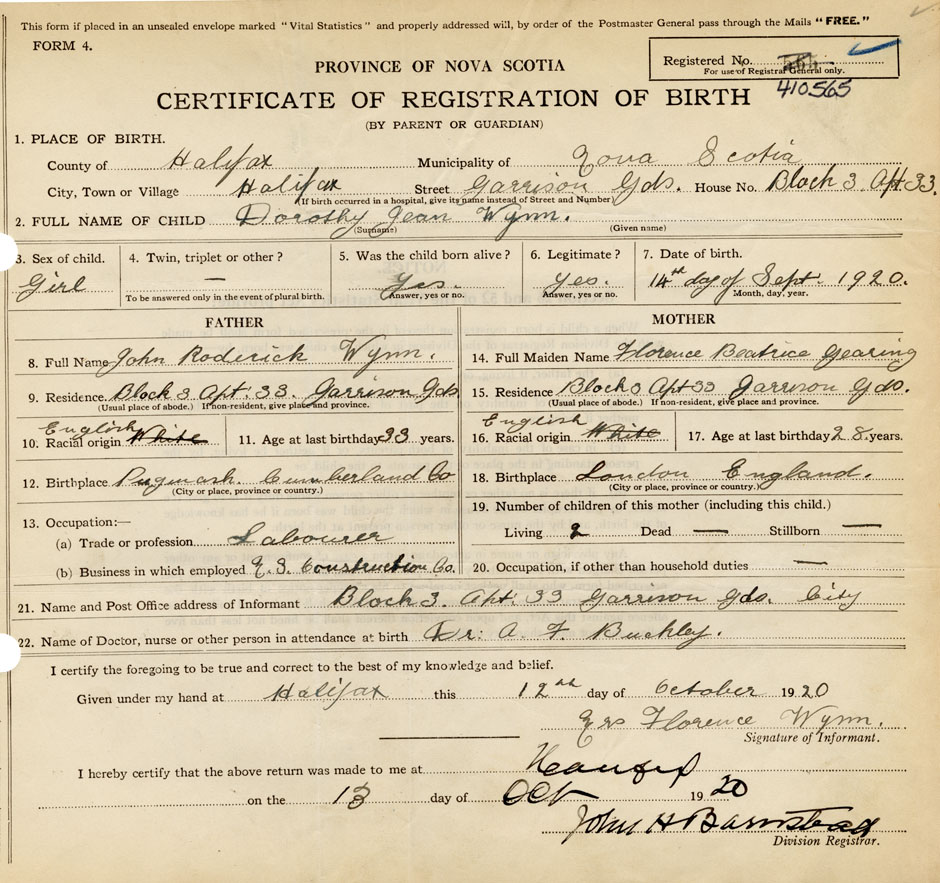 This form if placed in an unsealed envelope marked "Vital Statistics" and properly addressed will, by order of the Postmaster General pass through the Mails "FREE."
FORM 4.
Registered No.
For use of Registrar General only.
410565
PROVINCE OF NOVA SCOTIA
CERTIFICATE OF REGISTRATION OF BIRTH
(BY PARENT OR GUARDIAN)
1. PLACE OF BIRTH.
County of Halifax Municipality of Nova Scotia
City, Town or Village Halifax Street Garrison Gds. House No. Block 3 Apt. 33.
(If birth occurred in a hospital, give its name instead of Street and Number)
2. FULL NAME OF CHILD Dorothy Jean Wynn.
(Surname) (Given name)
3. Sex of child. 4. Twin, triplet or other? 5. Was the child born alive? 6. Legitimate? 7. Date of birth.
Girl — Yes. Yes. 14th day of Sept. 1920.
To be answered only in the event of plural birth. (Answer, yes or no. Answer, yes or no. Month, day, year.
FATHER MOTHER
8. Full Name John Roderick Wynn. 14. Full Maiden Name Florence Beatrice Gearing
9. Residence Block 3 Apt. 33. Garrison Gds 15. Residence Block 3 Apt 33 Garrison Gds.
(Usual place of abode.) If non-resident, give place and province. (Usual place of abode.) If non-resident, give place and province.
English English
10. Racial origin White 11. Age at last birthday 33 years. 16. Racial origin White 17. Age at last birthday 28 years.
12. Birthplace Pugwash. Cumberland Co 18. Birthplace London England.
(City or place, province or country.) (City or place, province or country.)
13. Occupation:— 19. Number of children of this mother (including this child.)
(a) Trade or profession Labourer Living 2 Dead — Stillborn —
(b) Business in which employed N. S. Construction Co. 20. Occupation, if other than household duties —
21. Name and Post Office address of Informant Block 3. Apt. 33 Garrison Gds. City
22. Name of Doctor, nurse or other person in attendance at birth Dr. A. F. Buckley.
I certify the foregoing to be true and correct to the best of my knowledge and belief.
Given under my hand at Halifax this 12th day of October 1920
Mrs Florence Wynn.
Signature of Informant.
I hereby certify that the above return was made to me at Halifax
on the 13 day of Oct 1920
John H Barnstead
Division Registrar.